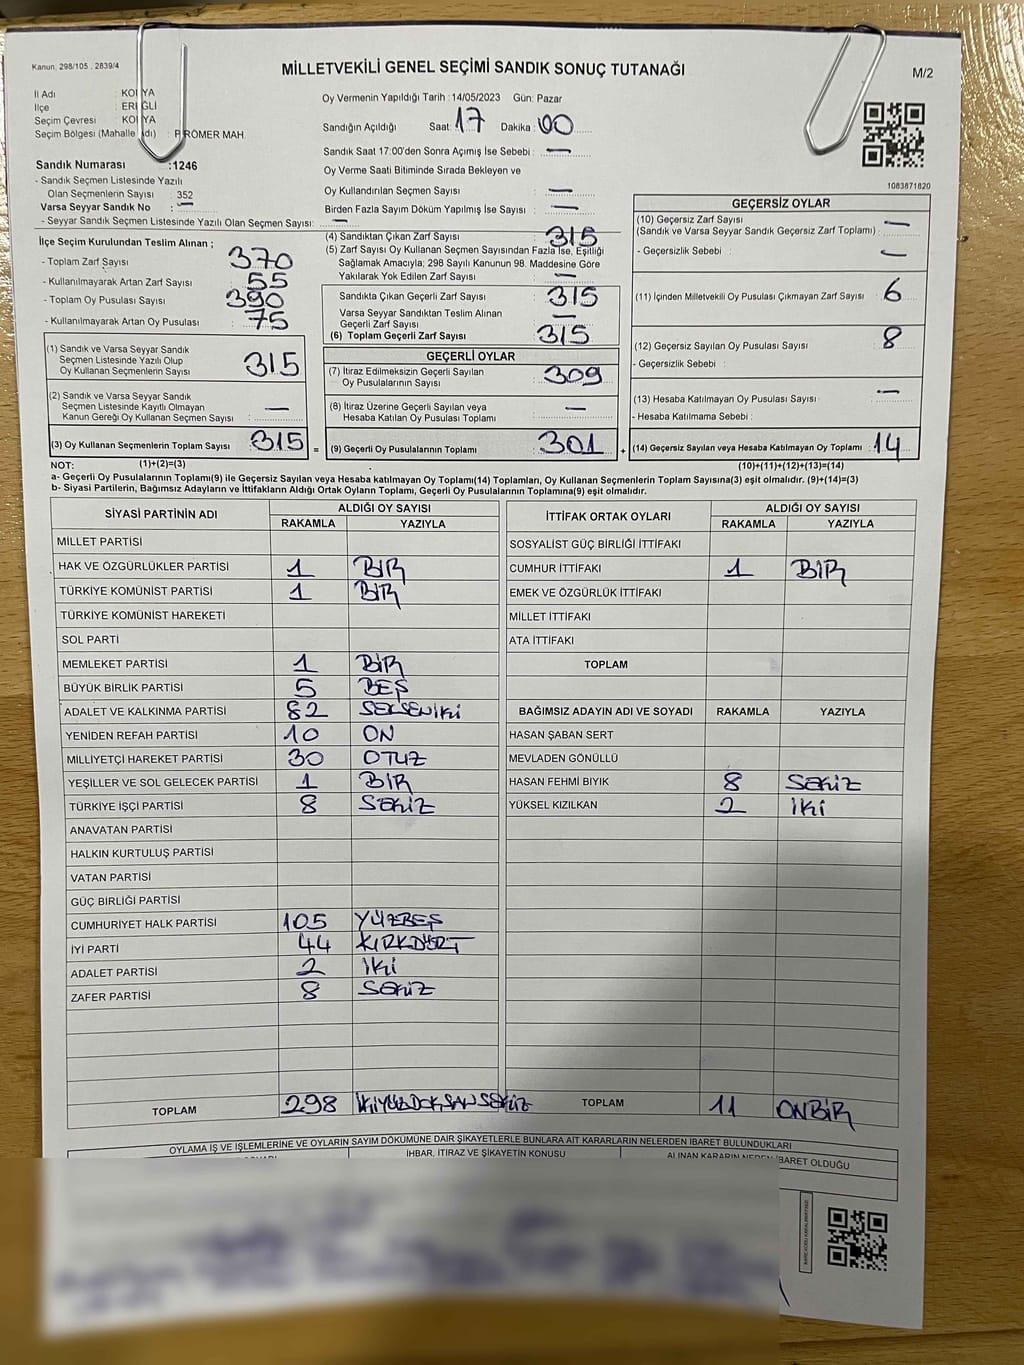 Kanun: 298/105 , 2839/4
MİLLETVEKİLİ GENEL SEÇİMİ SANDIK SONUÇ TUTANAĞI
M/2
İl Adı : KONYA
İlçe : EREĞLİ
Seçim Çevresi : KONYA
Seçim Bölgesi (Mahalle Adı) : PİRÖMER MAH.
Sandık Numarası :1246
- Sandık Seçmen Listesinde Yazılı
Olan Seçmenlerin Sayısı : 352
Varsa Seyyar Sandık No : —
- Seyyar Sandık Seçmen Listesinde Yazılı Olan Seçmen Sayısı: —
Oy Vermenin Yapıldığı Tarih : 14/05/2023 Gün: Pazar
Sandığın Açıldığı Saat: 17 Dakika: 00
Sandık Saat 17:00'den Sonra Açımış İse Sebebi : —
Oy Verme Saati Bitiminde Sırada Bekleyen ve
Oy Kullandırılan Seçmen Sayısı : —
Birden Fazla Sayım Döküm Yapılmış İse Sayısı : —
1083871820
İlçe Seçim Kurulundan Teslim Alınan ;
- Toplam Zarf Sayısı : 370
- Kullanılmayarak Artan Zarf Sayısı : 55
- Toplam Oy Pusulası Sayısı : 390
- Kullanılmayarak Artan Oy Pusulası : 75
(1) Sandık ve Varsa Seyyar Sandık
Seçmen Listesinde Yazılı Olup
Oy Kullanan Seçmenlerin Sayısı : 315
(2) Sandık ve Varsa Seyyar Sandık
Seçmen Listesinde Kayıtlı Olmayan
Kanun Gereği Oy Kullanan Seçmen Sayısı : —
(3) Oy Kullanan Seçmenlerin Toplam Sayısı : 315 =
(4) Sandıktan Çıkan Zarf Sayısı : 315
(5) Zarf Sayısı Oy Kullanan Seçmen Sayısından Fazla İse, Eşitliği
Sağlamak Amacıyla; 298 Sayılı Kanunun 98. Maddesine Göre
Yakılarak Yok Edilen Zarf Sayısı : —
Sandıkta Çıkan Geçerli Zarf Sayısı : 315
Varsa Seyyar Sandıktan Teslim Alınan
Geçerli Zarf Sayısı : —
(6) Toplam Geçerli Zarf Sayısı : 315
GEÇERLİ OYLAR
(7) İtiraz Edilmeksizin Geçerli Sayılan
Oy Pusulalarının Sayısı : 309
(8) İtiraz Üzerine Geçerli Sayılan veya
Hesaba Katılan Oy Pusulası Toplamı : —
(9) Geçerli Oy Pusulalarının Toplamı : 301 +
GEÇERSİZ OYLAR
(10) Geçersiz Zarf Sayısı
(Sandık ve Varsa Seyyar Sandık Geçersiz Zarf Toplamı) : —
- Geçersizlik Sebebi : —
(11) İçinden Milletvekili Oy Pusulası Çıkmayan Zarf Sayısı : 6
(12) Geçersiz Sayılan Oy Pusulası Sayısı : 8
- Geçersizlik Sebebi :
(13) Hesaba Katılmayan Oy Pusulası Sayısı : —
- Hesaba Katılmama Sebebi :
(14) Geçersiz Sayılan veya Hesaba Katılmayan Oy Toplamı : 14
NOT: (1)+(2)=(3) (10)+(11)+(12)+(13)=(14)
a- Geçerli Oy Pusulalarının Toplamı(9) ile Geçersiz Sayılan veya Hesaba katılmayan Oy Toplamı(14) Toplamları, Oy Kullanan Seçmenlerin Toplam Sayısına(3) eşit olmalıdır. (9)+(14)=(3)
b- Siyasi Partilerin, Bağımsız Adayların ve İttifakların Aldığı Ortak Oyların Toplamı, Geçerli Oy Pusulalarının Toplamına(9) eşit olmalıdır.
SİYASİ PARTİNİN ADI ALDIĞI OY SAYISI
RAKAMLA YAZIYLA
MİLLET PARTİSİ
HAK VE ÖZGÜRLÜKLER PARTİSİ 1 BİR
TÜRKİYE KOMÜNİST PARTİSİ 1 BİR
TÜRKİYE KOMÜNİST HAREKETİ
SOL PARTİ
MEMLEKET PARTİSİ 1 BİR
BÜYÜK BİRLİK PARTİSİ 5 BEŞ
ADALET VE KALKINMA PARTİSİ 82 SEKSENİKİ
YENİDEN REFAH PARTİSİ 10 ON
MİLLİYETÇİ HAREKET PARTİSİ 30 OTUZ
YEŞİLLER VE SOL GELECEK PARTİSİ 1 BİR
TÜRKİYE İŞÇİ PARTİSİ 8 SEKİZ
ANAVATAN PARTİSİ
HALKIN KURTULUŞ PARTİSİ
VATAN PARTİSİ
GÜÇ BİRLİĞİ PARTİSİ
CUMHURİYET HALK PARTİSİ 105 YÜZBEŞ
İYİ PARTİ 44 KIRKDÖRT
ADALET PARTİSİ 2 İKİ
ZAFER PARTİSİ 8 SEKİZ
TOPLAM 298 İKİYÜZDOKSANSEKİZ
İTTİFAK ORTAK OYLARI ALDIĞI OY SAYISI
RAKAMLA YAZIYLA
SOSYALİST GÜÇ BİRLİĞİ İTTİFAKI
CUMHUR İTTİFAKI 1 BİR
EMEK VE ÖZGÜRLÜK İTTİFAKI
MİLLET İTTİFAKI
ATA İTTİFAKI
TOPLAM
BAĞIMSIZ ADAYIN ADI VE SOYADI RAKAMLA YAZIYLA
HASAN ŞABAN SERT
MEVLADEN GÖNÜLLÜ
HASAN FEHMİ BIYIK 8 SEKİZ
YÜKSEL KIZILKAN 2 İKİ
TOPLAM 11 ONBİR
OYLAMA İŞ VE İŞLEMLERİNE VE OYLARIN SAYIM DÖKÜMÜNE DAİR ŞİKAYETLERLE BUNLARA AİT KARARLARIN NELERDEN İBARET BULUNDUKLARI
İHBAR, İTİRAZ VE ŞİKAYETİN KONUSU
ALINAN KARARIN NEDEN İBARET OLDUĞU